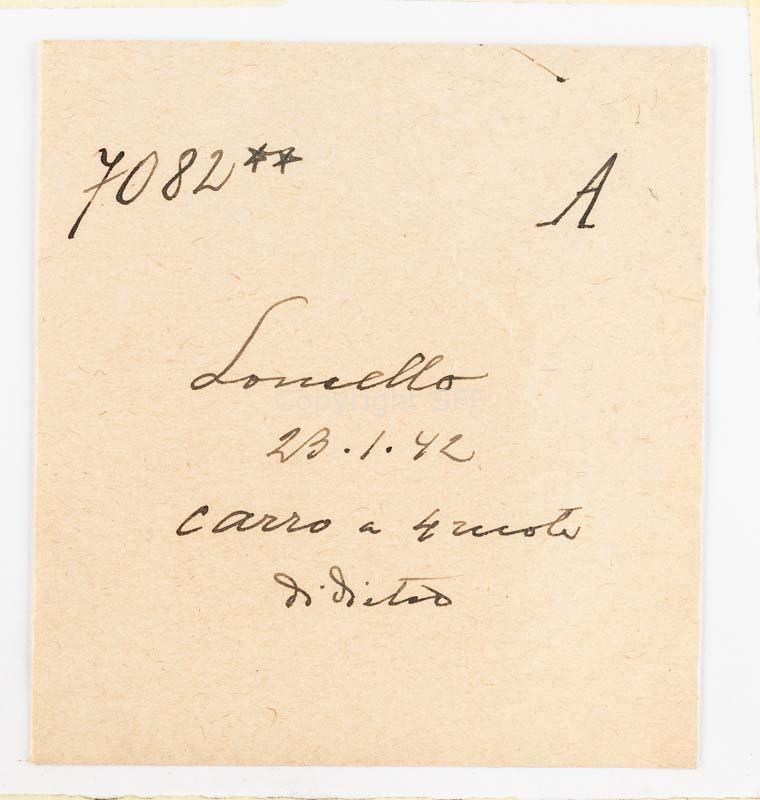 7082** A
Lomello
23.1.42
carro a 4 ruote
di dietro